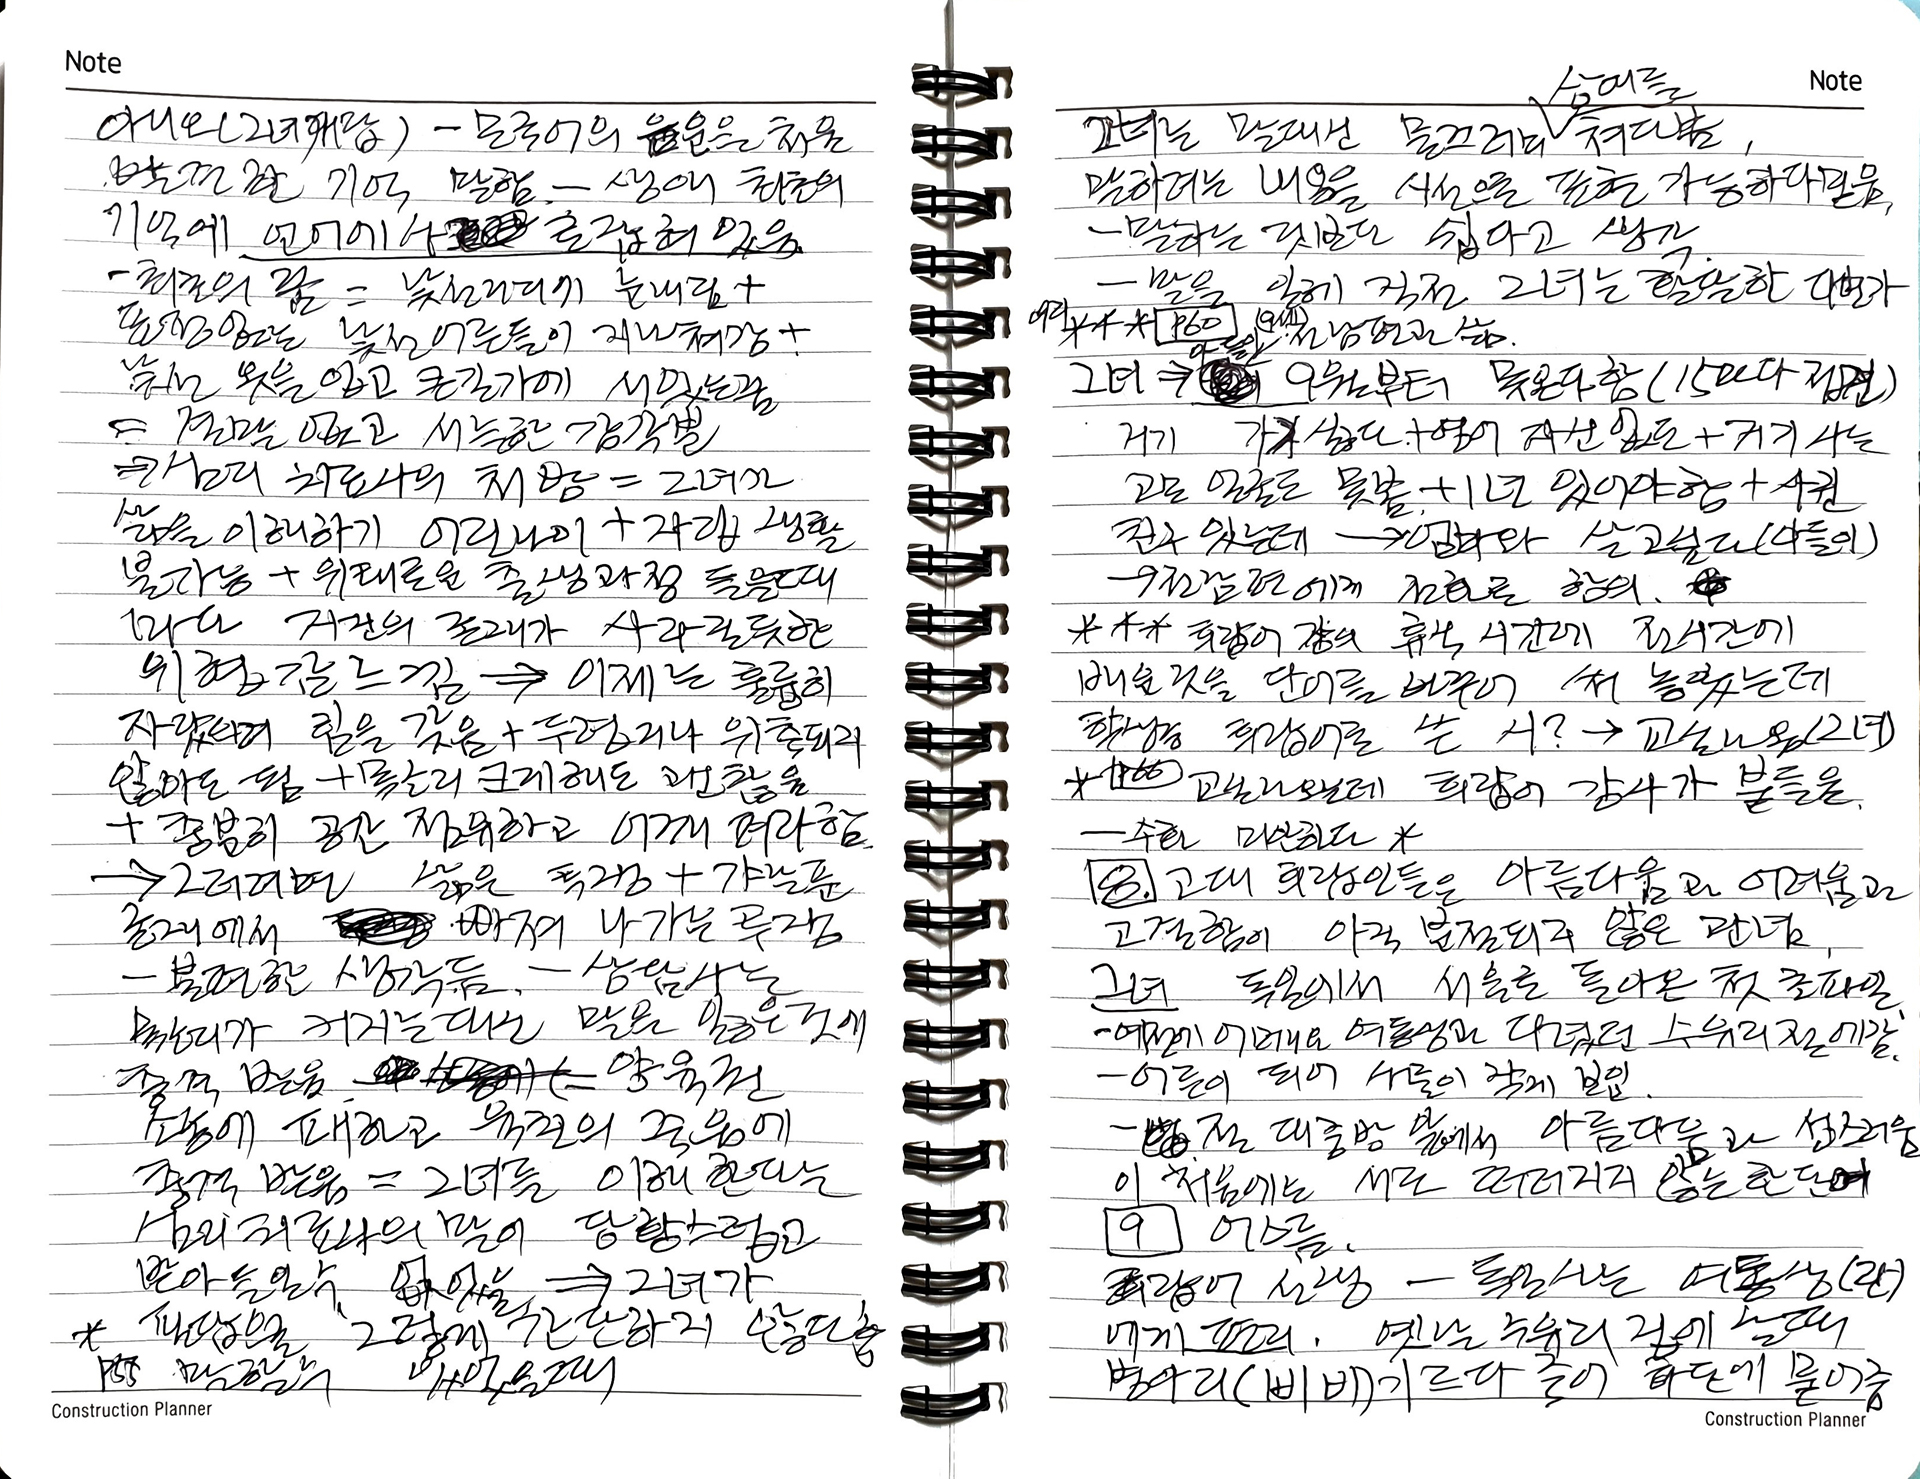 Note
아니오(그녀개람) - 모국어의 음운을 처음
발견한 기억 말함. - 생애 최초의
기억에 언어에서 출값혀 있음
- 최초의 꿈 = 낯선거리가 눈내림 +
표정없는 낯선어른들이 지나쳐감 +
낯선 옷을 입고 큰길가에 서있는꿈
= 전말 없고 서늘한 감각뿐
⇒ 심리 치료사의 처방 = 그녀가
삶을 이해하기 어린나이 + 자립 생활
불가능 + 위태로운 출생과정 들을때
마다 자신의 존재가 사라질듯한
위협감느낌 → 이제는 훌륭히
자랐으며 힘을 갖음 + 두렵거나 위축되지
않아도 됨 + 목소리 크게해도 괜찮음
+ 충분히 공간 점유하고 어깨 펴라함.
→ 그러려면 삶은 투쟁 + 가냘픈
존재에서 빠져 나가는 투쟁
- 불편한 생각듬. - 상담사는
목소리가 커지는대신 말을 잃은것에
충격 받음 양육권
소송에 패하고 육친의 죽음에
충격 받음 = 그녀를 이해 한다는
심리치료사의 말이 당황스럽고
받아들일수 없었음 ⇒ 그녀가
* 파담으로 '그렇게 간단하지 않다함
P55 말할수 없었을때
Construction Planner
Note
삼여들
그녀는 말대신 물끄러미 쳐다봄,
말하려는 내용을 시선으로 표현 가능하다믿음,
- 말하는 것보다 쉽다고 생각.
- 말을 잃게 직전 그녀는 활발한 다변가
여덟 *** P60 (9세) 전남편과 삶.
그녀 ⇒ 아들이 9월부터 못온다함 (15마다 접견)
거기 가기싫다 + 영어 자신없다 + 거기 사는
고모 얼굴도 못봄. + 1년 있어야함 + 사귄
친구 있는데 → 엄마와 살고싶다 (아들이)
→ 전남편에게 전화로 항의.
*** 희랍어 강의 휴식 시간에 전시간에
배운것을 단어를 바꾸어 써 놓았는데
학생중 희랍어로 쓴 시? → 교실나옴(그녀)
* P66 교실나오는데 희랍어 강사가 붙들음.
- 수화 미안하다 *
8. 고대 희랍인들은 아름다움과 어려움과
고결함이 아직 분절되지 않은 관념,
그녀 독일에서 서울로 돌아온 첫 초파일,
- 예전에 어머니와 여동생과 다녔던 수유리 절에감.
- 어른이 되어 사물이 작게 보임.
- 절 대중방 앞에서 아름다움과 성스러움
이 처음에는 서로 떨어지지 않는 한단어
9 어스름.
희랍어 선생 - 독일사는 여동생(란)
에게 편지. 옛날 수유리 집에 살때
병아리(삐비)기르다 죽어 화단에 묻어줌
Construction Planner